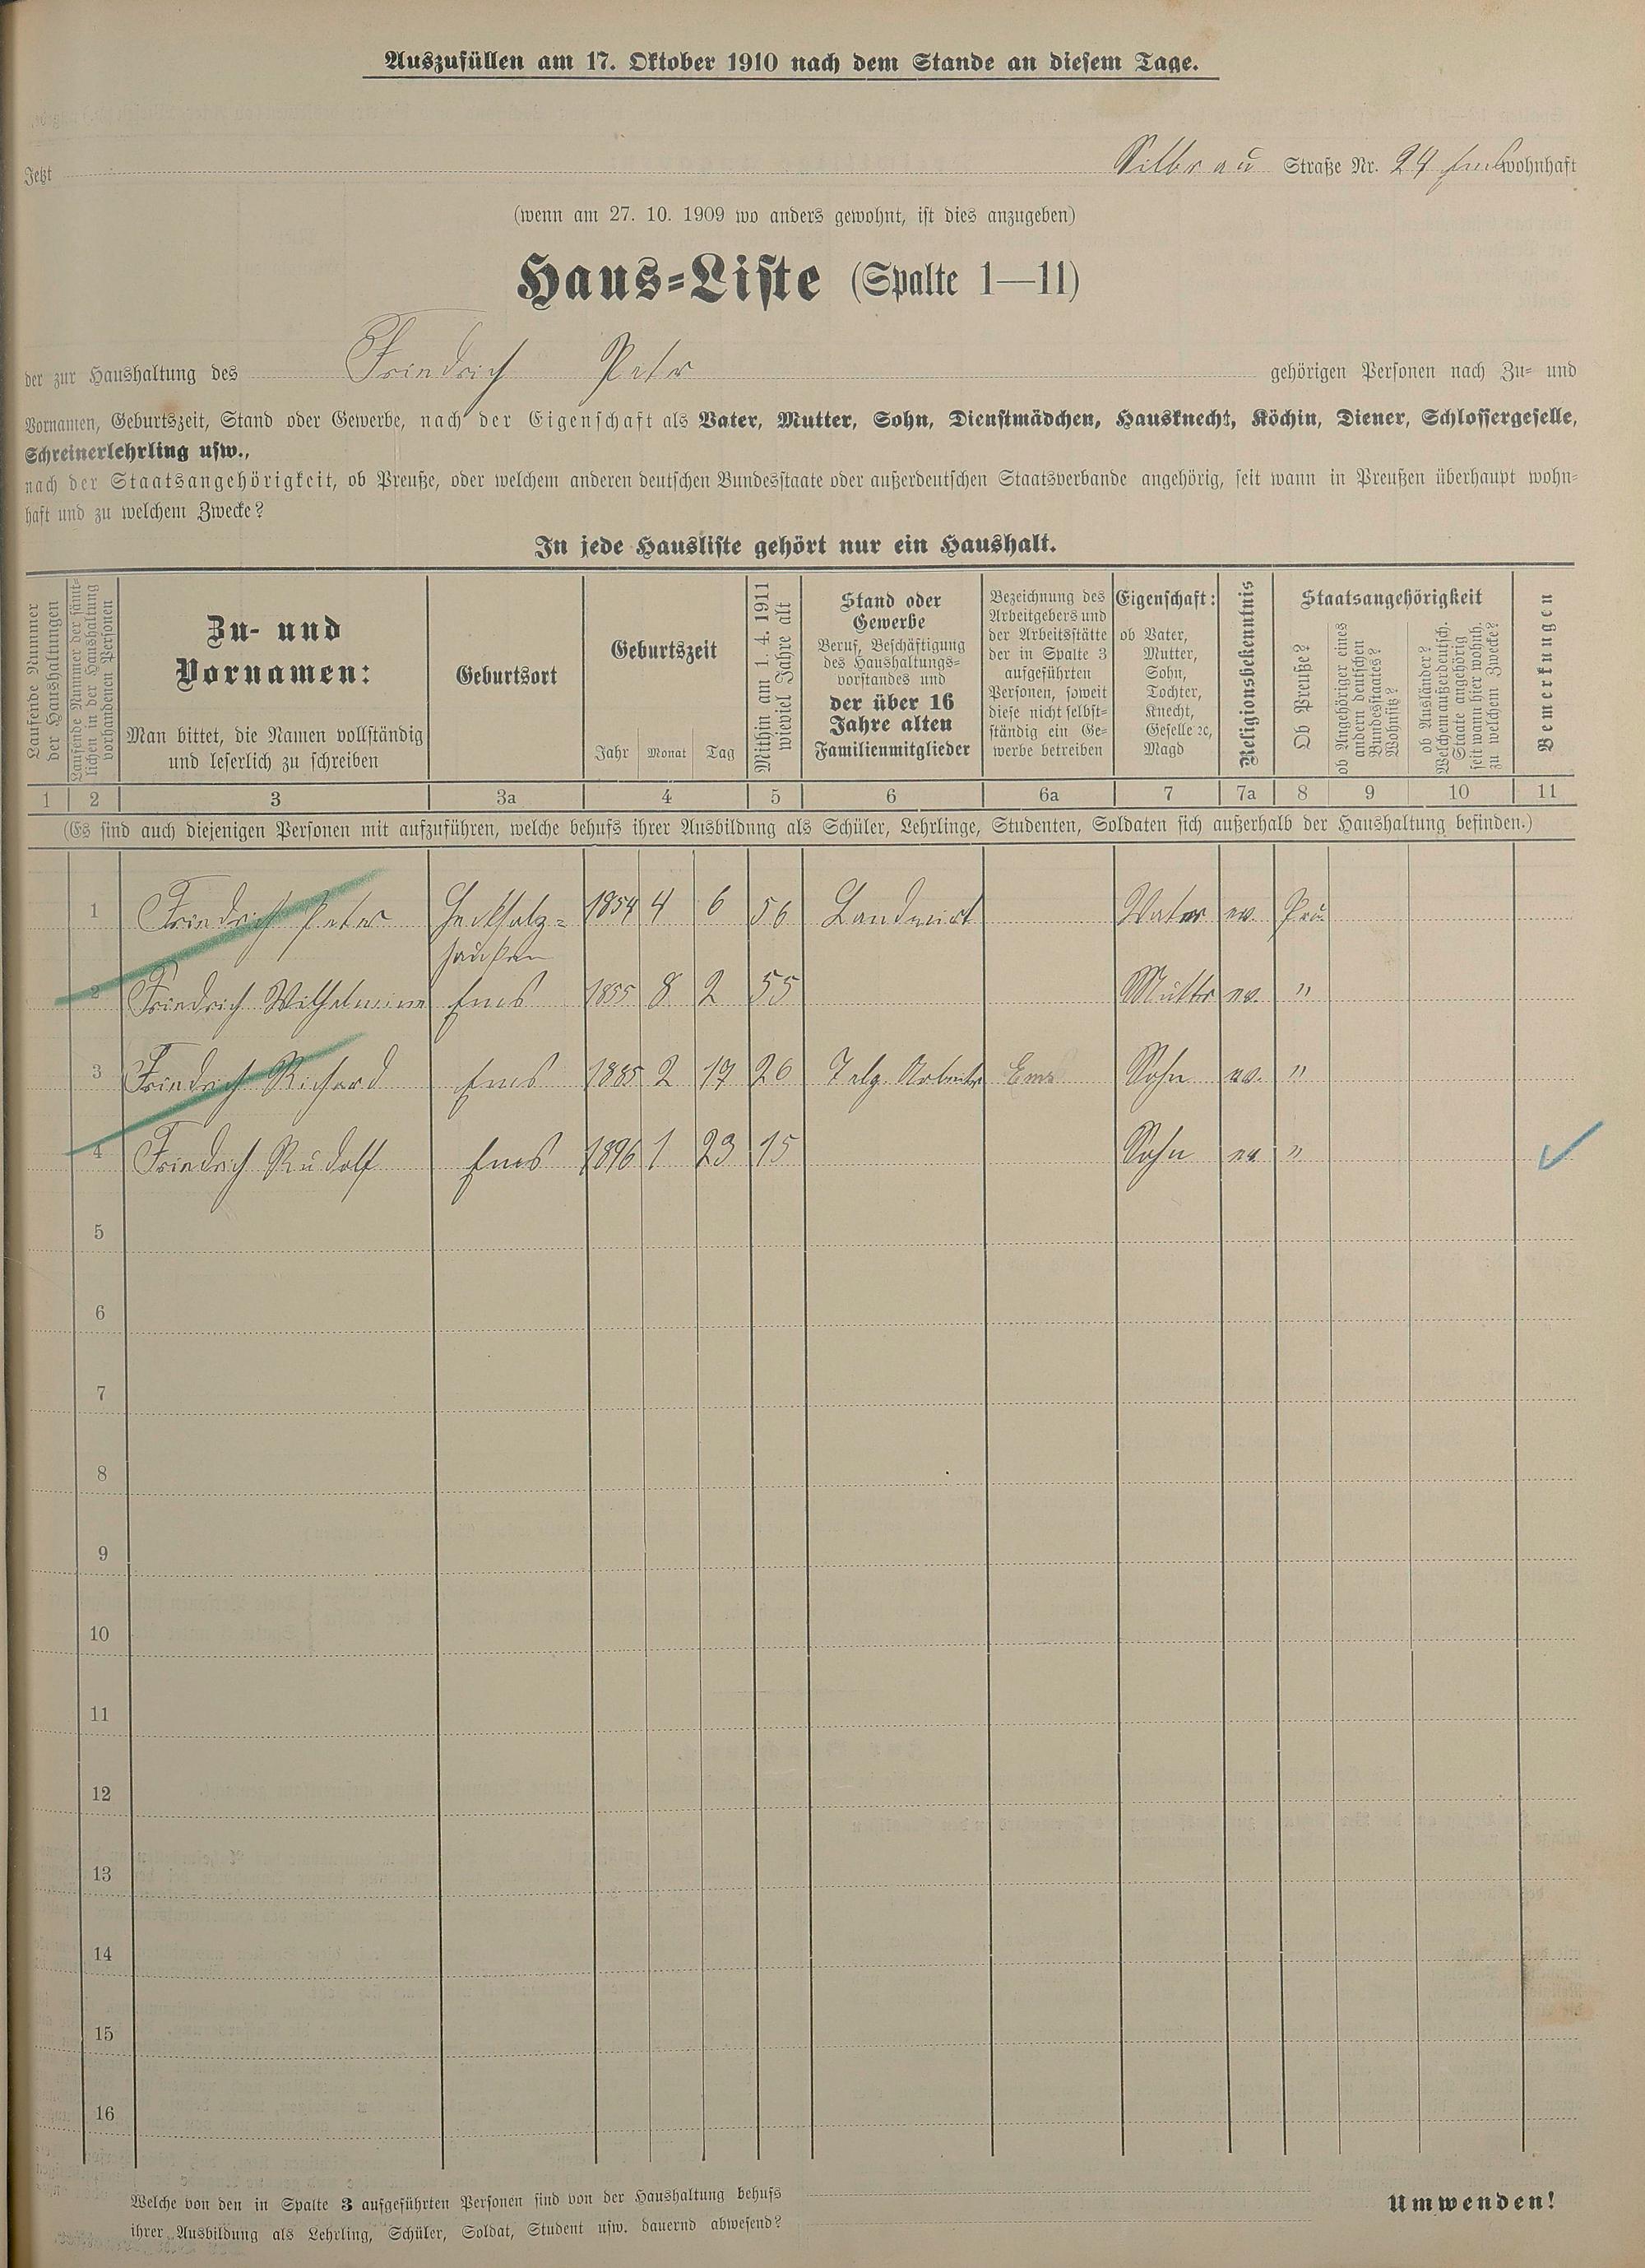 Auszufüllen am 17. Oktober 1910 nach dem Stande an diesem Tage.
Jetzt Silbrau Straße Nr. 24 Ems wohnhaft
(wenn am 27. 10. 1909 wo anders gewohnt, ist dies anzugeben)
Haus-Liste (Spalte 1—11)
der zur Haushaltung des Friedrich Peter gehörigen Personen nach Zu- und
Vornamen, Geburtszeit, Stand oder Gewerbe, nach der Eigenschaft als Vater, Mutter, Sohn, Dienstmädchen, Hausknecht, Köchin, Diener, Schlossergeselle,
Schreinerlehrling usw.,
nach der Staatsangehörigkeit, ob Preuße, oder welchem anderen deutschen Bundesstaate oder außerdeutschen Staatsverbande angehörig, seit wann in Preußen überhaupt wohn-
haft und zu welchem Zwecke?
In jede Hausliste gehört nur ein Haushalt.
Laufende Nummer
der Haushaltungen
Laufende Nummer der sämt-
lichen in der Haushaltung
vorhandenen Personen
Zu- und
Vornamen:
Man bittet, die Namen vollständig
und leserlich zu schreiben
Geburtsort
Geburtszeit
Jahr Monat Tag
Mithin am 1. 4. 1911
wieviel Jahre alt
Stand oder
Gewerbe
Beruf, Beschäftigung
des Haushaltungs-
vorstandes und
der über 16
Jahre alten
Familienmitglieder
Bezeichnung des
Arbeitgebers und
der Arbeitsstätte
der in Spalte 3
aufgeführten
Personen, soweit
diese nicht selbst-
ständig ein Ge-
werbe betreiben
Eigenschaft:
ob Vater,
Mutter,
Sohn,
Tochter,
Knecht,
Geselle ꝛc,
Magd
Religionsbekenntnis
Staatsangehörigkeit
Ob Preuße?
ob Angehöriger eines
andern deutschen
Bundesstaates?
Wohnsitz?
ob Ausländer?
Welchem außerdeutsch.
Staate angehörig
seit wann hier wohnh.
zu welchem Zwecke?
Bemerkungen
1 2 3 3a 4 5 6 6a 7 7a 8 9 10 11
(Es sind auch diejenigen Personen mit aufzuführen, welche behufs ihrer Ausbildung als Schüler, Lehrlinge, Studenten, Soldaten sich außerhalb der Haushaltung befinden.)
1 Friedrich Peter Heckholz- 1854 4 6 56 Landwirt Vater ev. Preu
hausen
2 Friedrich Wilhelmine Ems 1855 8 2 55 Mutter ev. "
3 Friedrich Richard Ems 1885 2 17 26 Telg. Arbeiter Ems Sohn ev. "
4 Friedrich Rudolf Ems 1896 1 23 15 Sohn ev "
5
6
7
8
9
10
11
12
13
14
15
16
Welche von den in Spalte 3 aufgeführten Personen sind von der Haushaltung behufs
ihrer Ausbildung als Lehrling, Schüler, Soldat, Student usw. dauernd abwesend?
Umwenden!